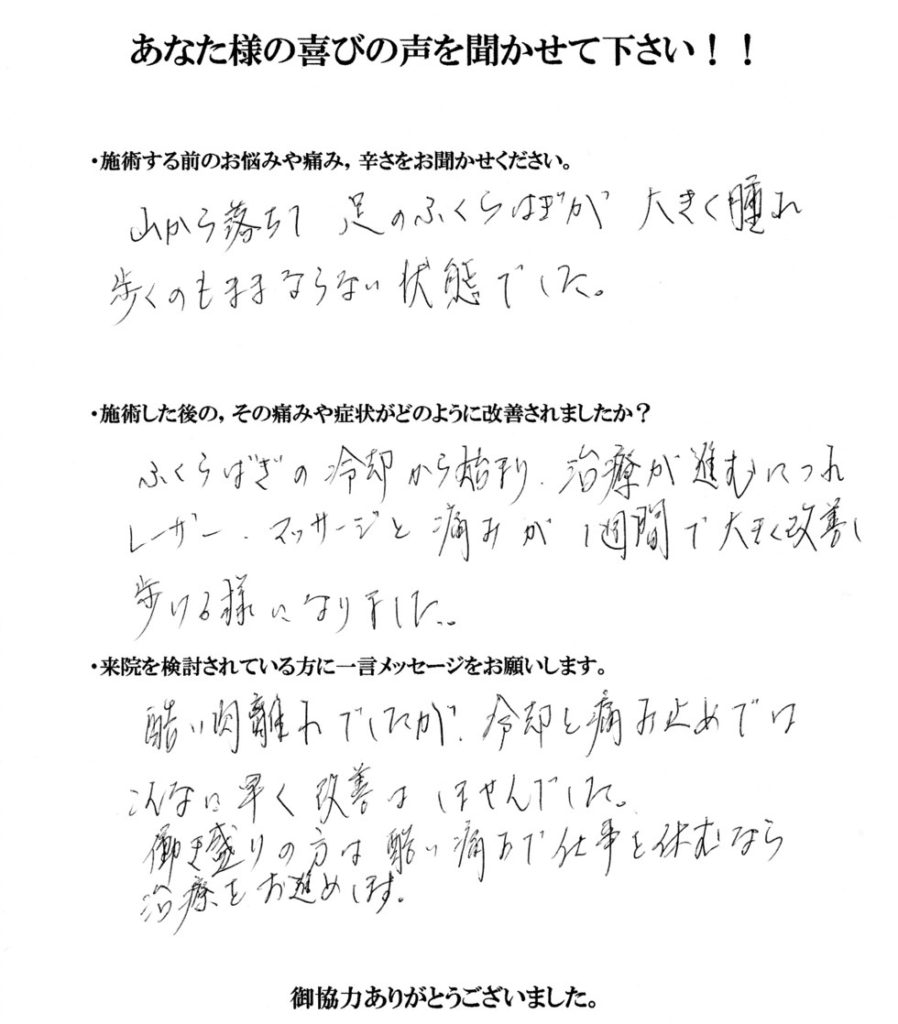 あなた様の喜びの声を聞かせて下さい！！
・施術する前のお悩みや痛み，辛さをお聞かせください。
山から落ちて 足のふくらはぎが 大きく腫れ
歩くのもままならない状態でした。
・施術した後の，その痛みや症状がどのように改善されましたか？
ふくらはぎの冷却から始まり、治療が進むにつれ
レーザー、マッサージと痛みが1週間で大きく改善し
歩ける様になりました。
・来院を検討されている方に一言メッセージをお願いします。
酷い肉離れでしたが、冷却と痛み止めでは
こんなに早く改善はしませんでした。
働き盛りの方は酷い痛みで仕事を休むなら
治療をお進めします。
御協力ありがとうございました。